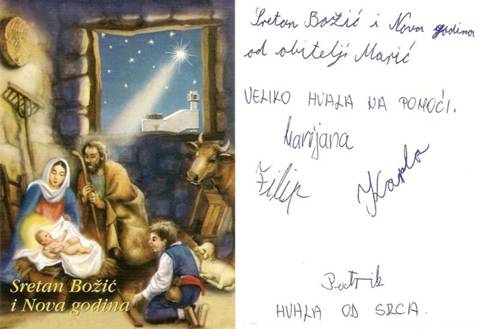 Sretan Božić
i Nova godina
Sretan Božić i Nova godina
od obitelji Marić
VELIKO HVALA NA POMOĆI.
Marijana
Filip
Karlo
Patrik
HVALA OD SRCA.